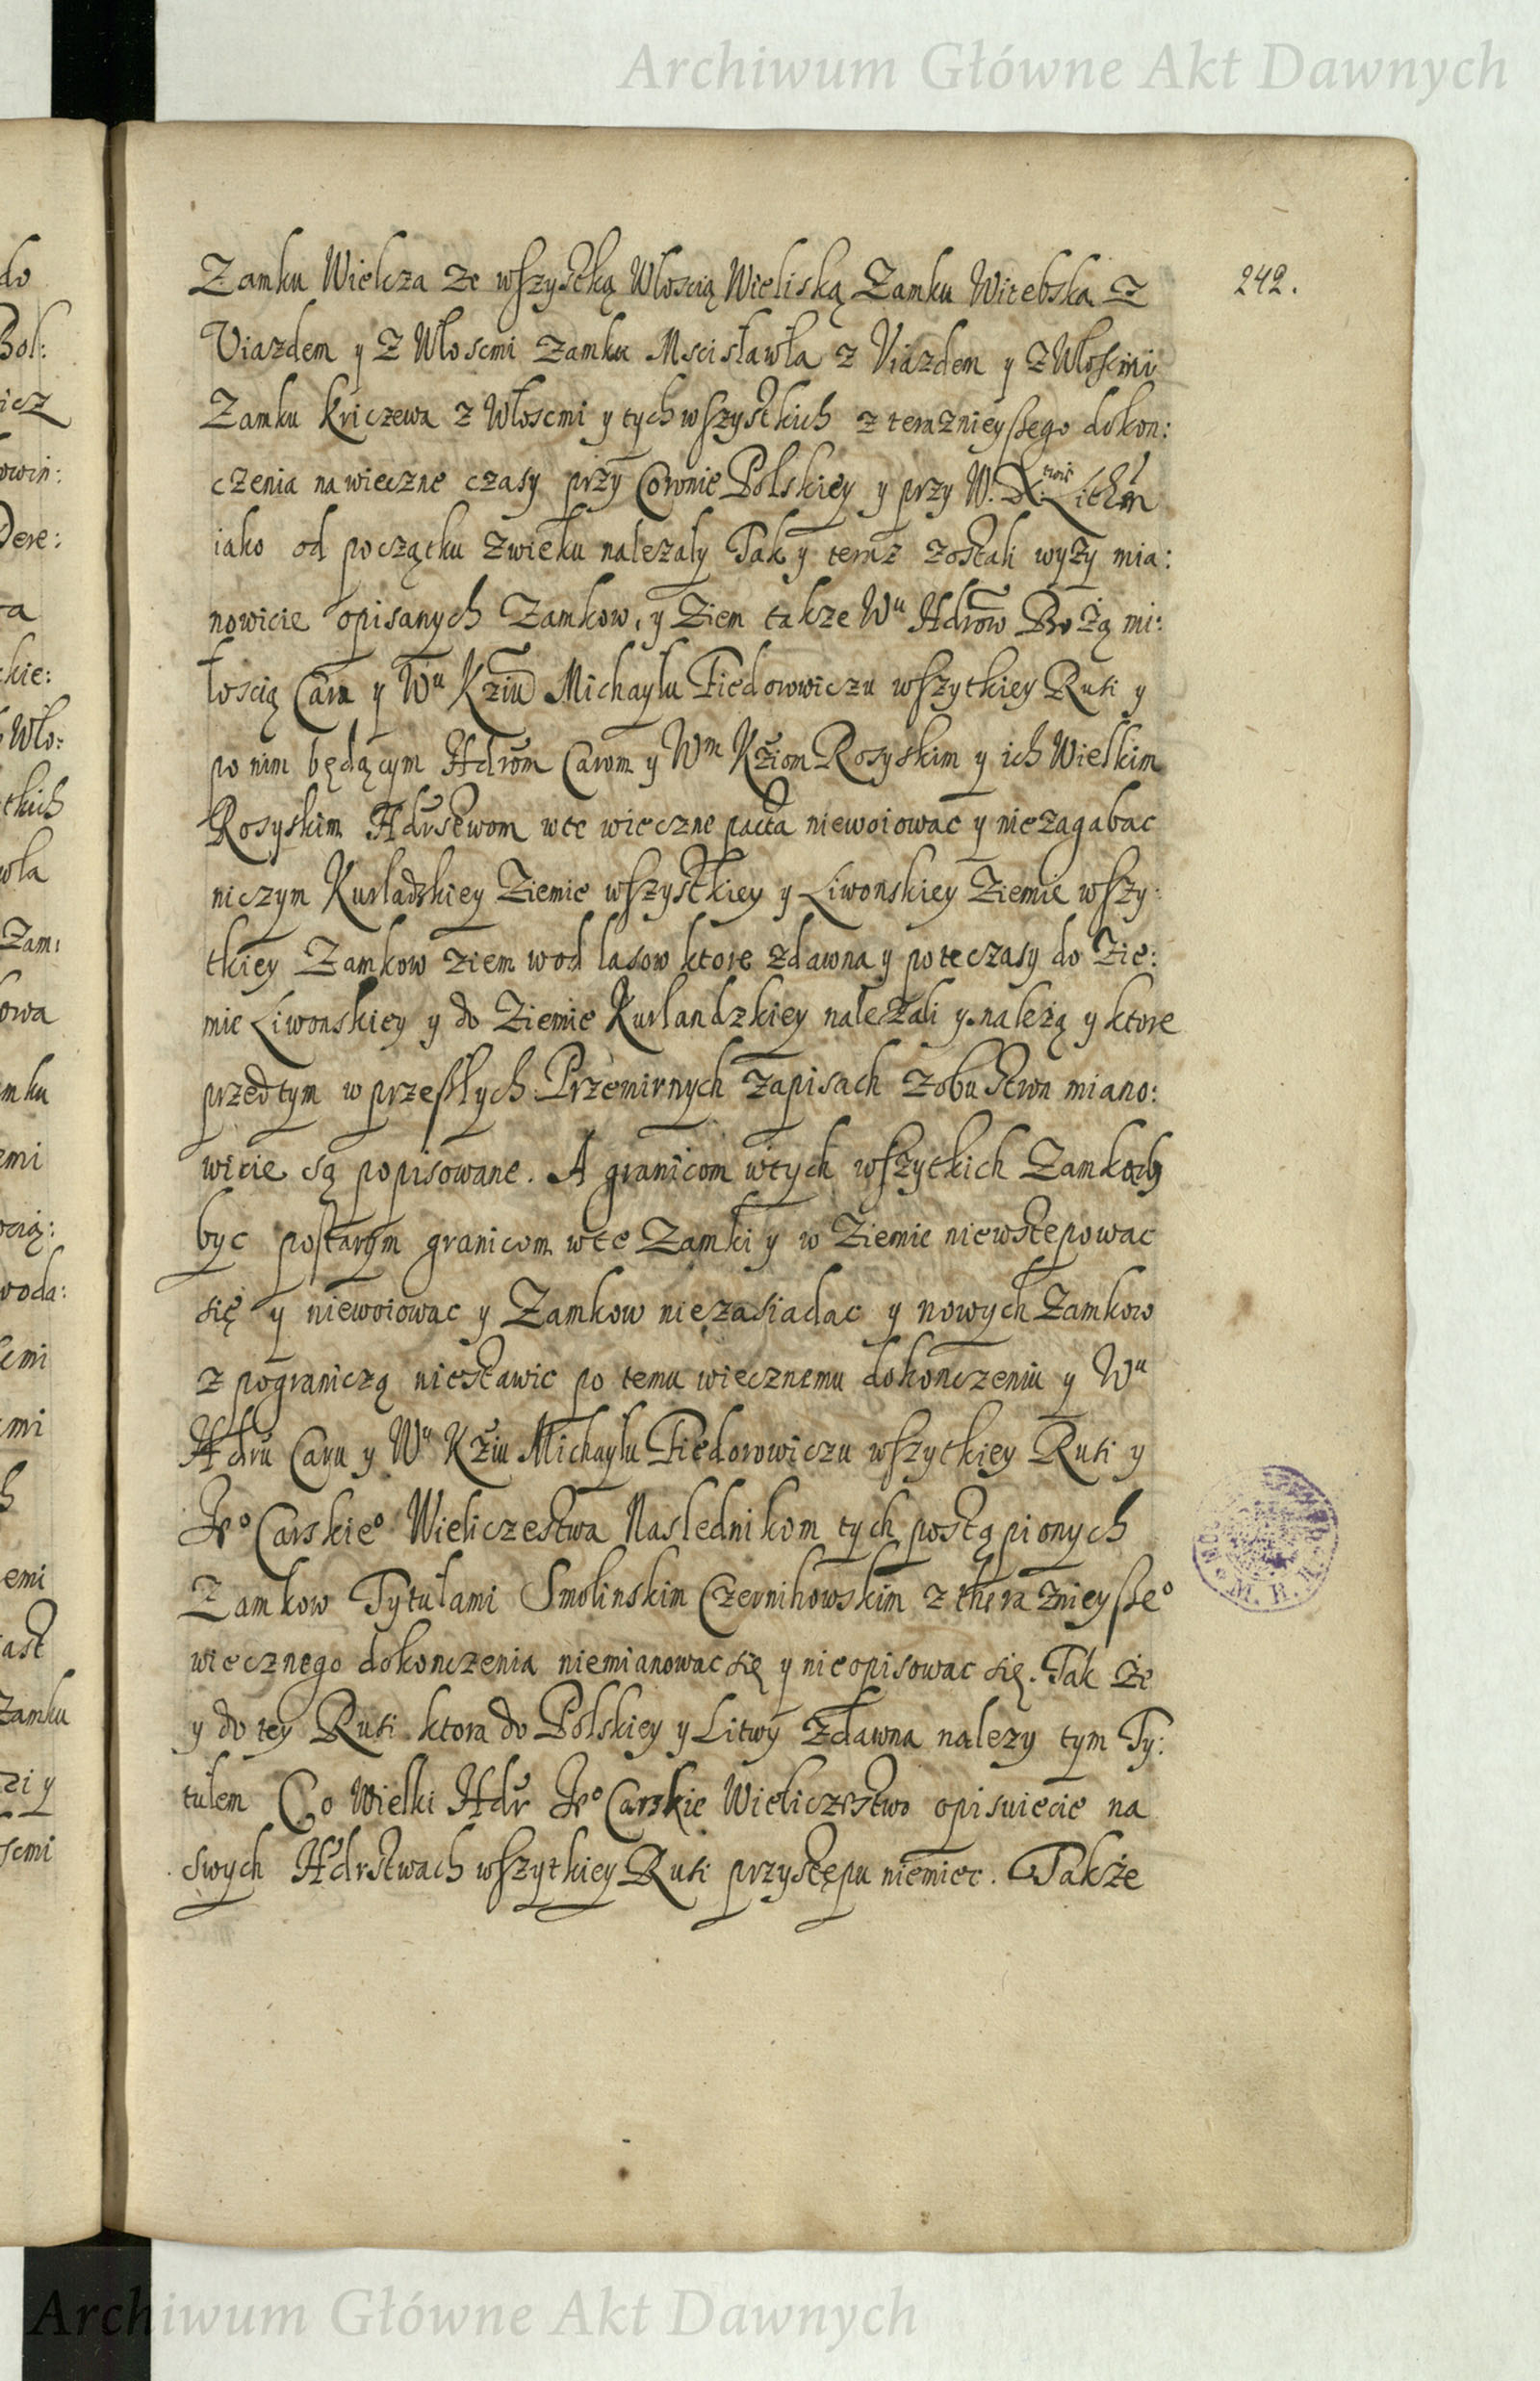 Archiwum Główne Akt Dawnych
242.
Zamku Wieleza ze wszystką Włoscią Wieliską Zamku Witebska z
Viazdem y z Włoscmi Zamku Mscisławła z Viazdem y z Włoscmi
Zamku Kriczewa z Włoscmi y tych wszystkich z teraznieyßego dokon:
czenia na wieczne czasy przy Coronie Polskiey y przy W. X.
iako od początku zwieku nalezały Tak y teraz zostali wyzy mia:
nowicie opisanych Zamkow, y Ziem takze Wu Hdrow Bożą mi:
łoscią Cara y Wu Kziu Michayłu Fiedorowiczu wszytkiey Rusi y
po nim będącym Hdrom Carom y Wm Kziom Rosyskim y ich Wielkim
Rosyskim Hdrstwom wte wieczne pacta niewoiowac y niezagabac
niczym Kurladzkiey Ziemie wszystkiey y Liwonskiey Ziemie wszy:
tkiey Zamkow Ziem wod lasow ktore zdawna y po te czasy do Zie:
mie Liwonskiey y do Ziemie Kurlandzkiey nalezali y należą y ktore
przedtym w przeszłych Przemirnych zapisach zobu stron miano:
wicie są popisowane. A granicom wtych wszytkich Zamkach
byc postarym granicom wte Zamki y w Ziemie niewstepowac
się y niewoiowac y Zamkow niezasiadac y nowych Zamkow
z pograniczą niestawic po temu wiecznemu dokonczeniu y Wu
Hdru Caru y Wu Kziu Michayłu Fiedorowiczu wszytkiey Rusi y
Jeo Carskieo Wieliczestwa Naslednikom tych postąpionych
Zamkow Tytułami Smolinskim Czernihowskim z theraznieyßeo
wiecznego dokonczenia niemianowac się y nieopisowac się. Tak że
y do tey Rusi ktora do Polskiey y Litwy zdawna nalezy tym Ty:
tułem Co Wielki Hdr Jeo Carskie Wieliczestwo opisuiecie na
swych Hdrstwach wszytkiey Rusi przystępu niemiec. Także
Archiwum Główne Akt Dawnych